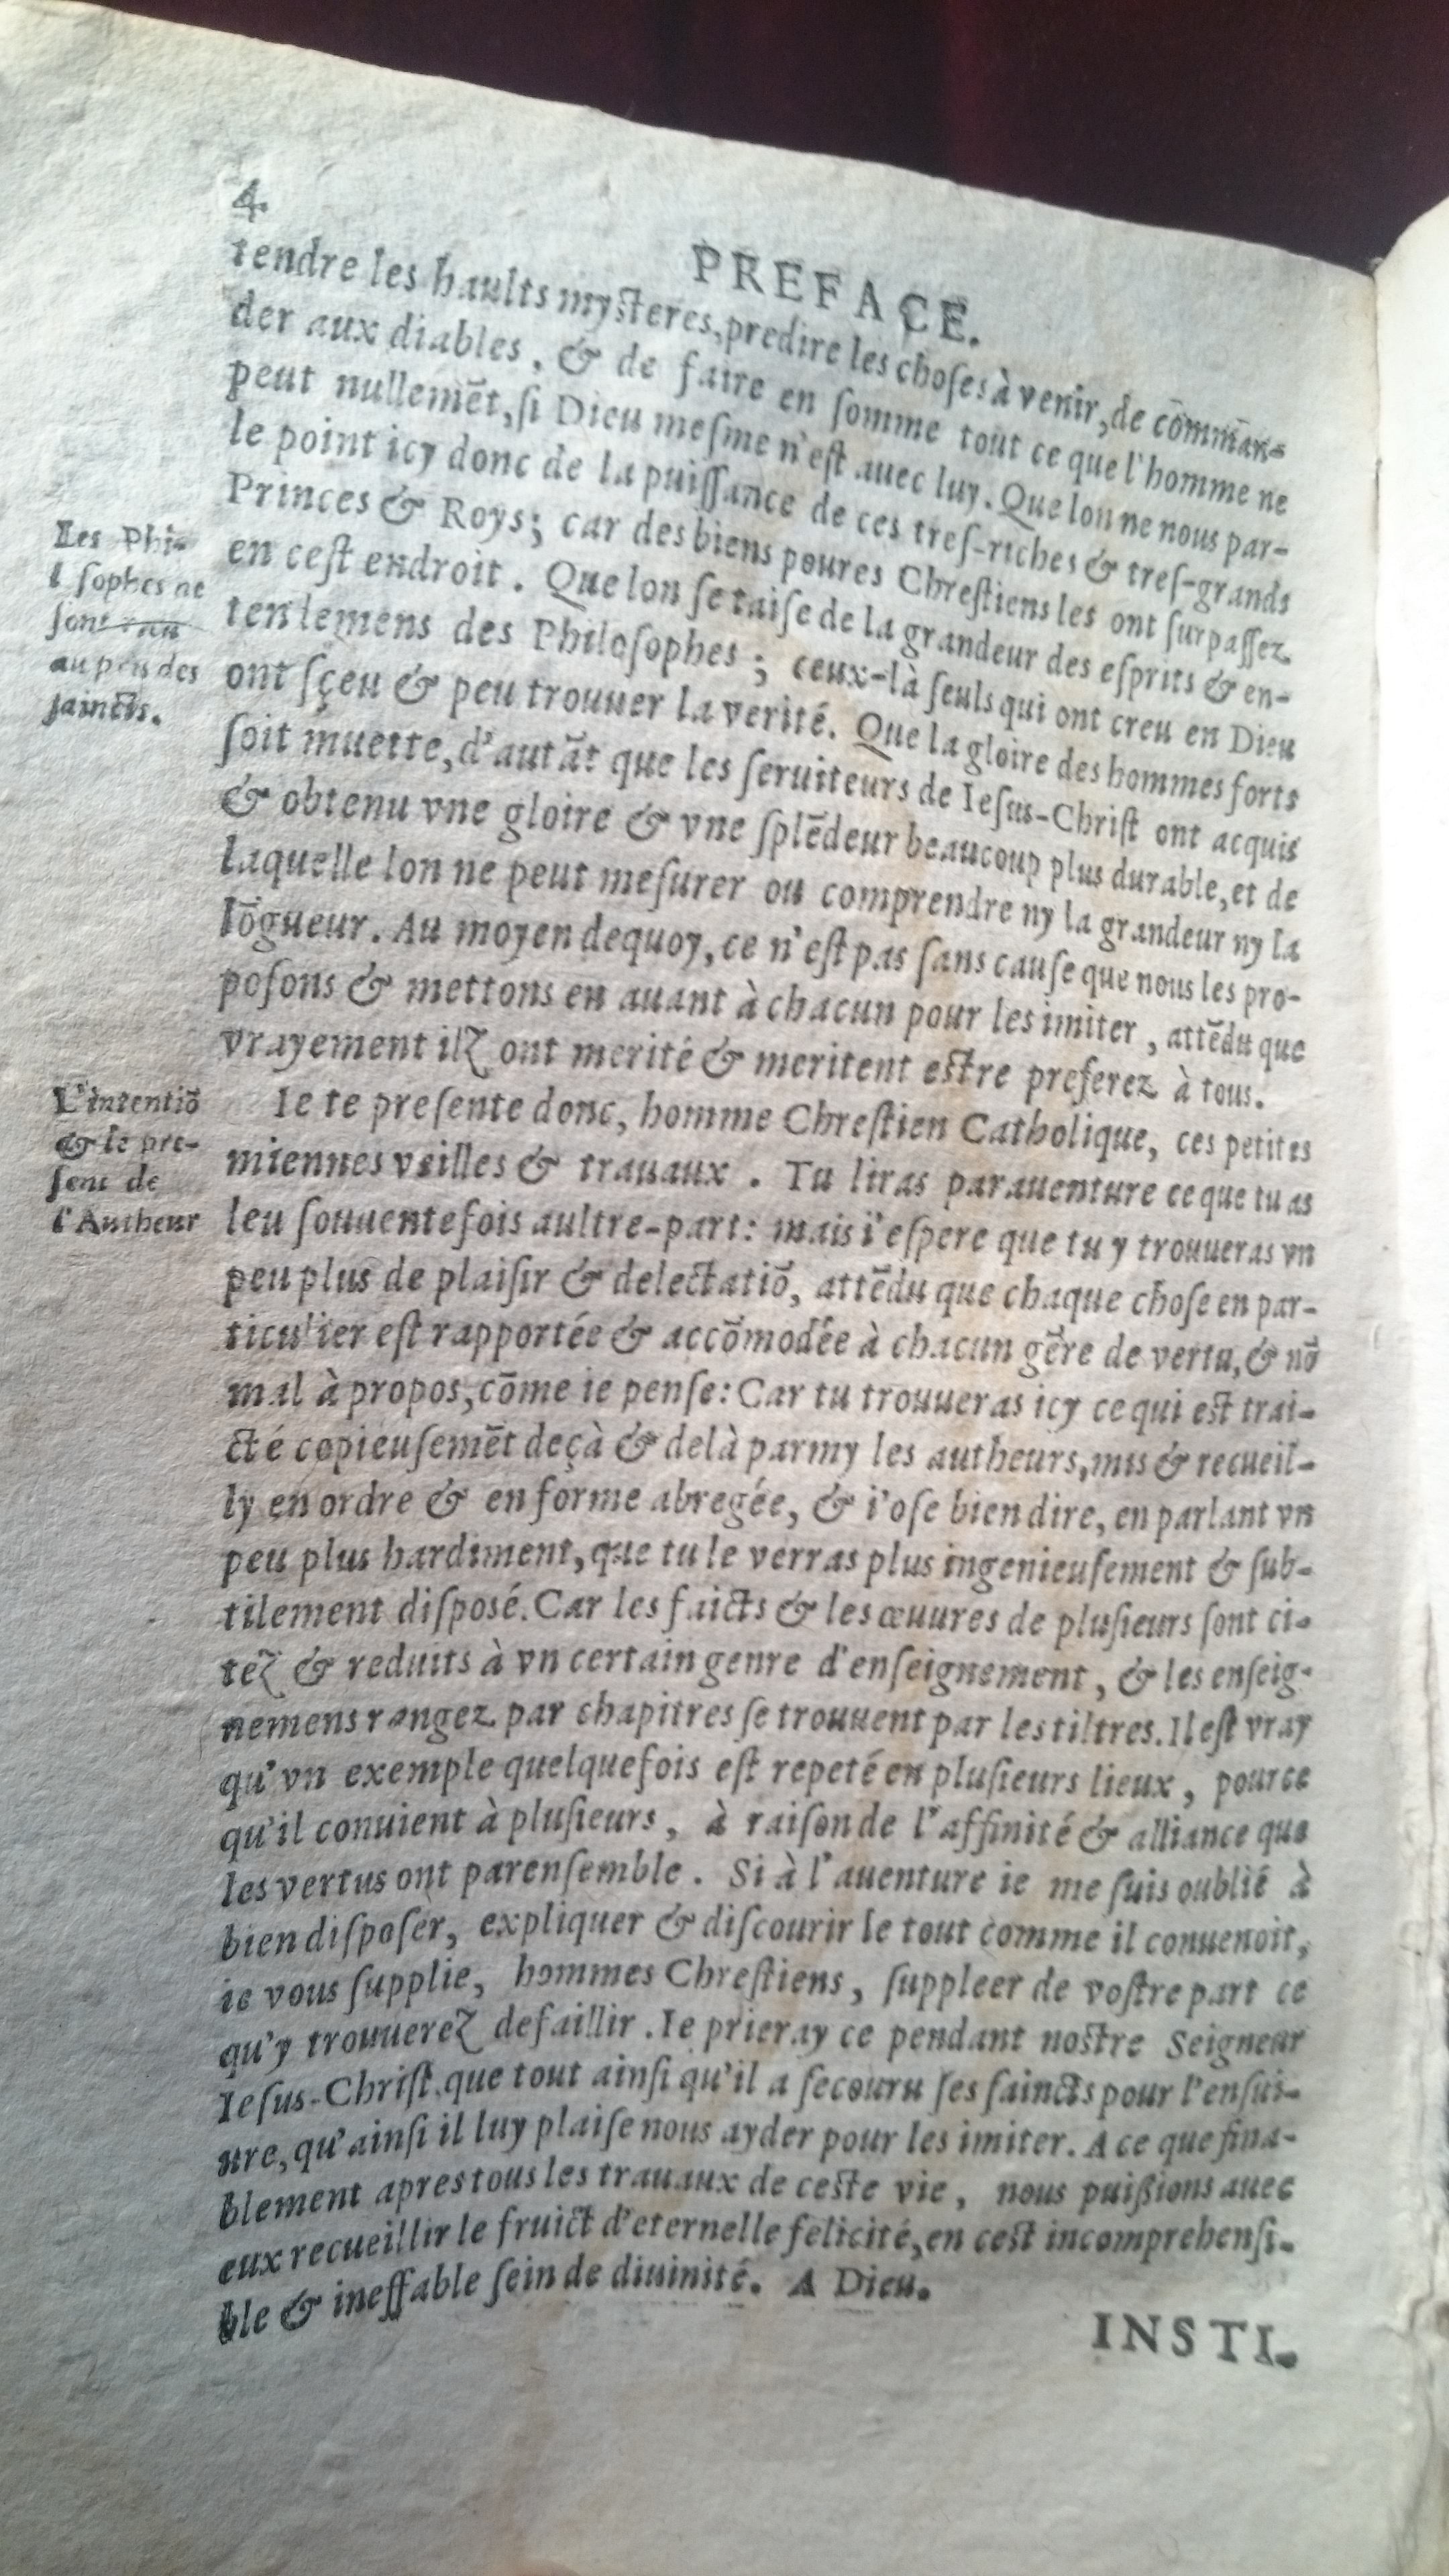 4.
PREFACE.
tendre les haults mysteres, predire les choſes à venir, de cõmman-
der aux diables, & de faire en ſomme tout ce que l'homme ne
peut nullemẽt, ſi Dieu meſme n'eſt auec luy. Que lon ne nous par-
le point icy donc de la puiſſance de ces treſ-riches & treſ-grands
Princes & Roys; car des biens poures Chreſtiens les ont ſurpaſſez
en ceſt endroit. Que lon ſe taiſe de la grandeur des eſprits & en-
tendemens des Philoſophes; ceux-là ſeuls qui ont creu en Dieu
ont ſçeu & peu trouuer la verité. Que la gloire des hommes forts
ſoit muette, d'autãt que les ſeruiteurs de Ieſus-Chriſt ont acquis
& obtenu vne gloire & vne ſplẽdeur beaucoup plus durable, et de
laquelle lon ne peut meſurer ou comprendre ny la grandeur ny la
lõgueur. Au moyen dequoy, ce n'eſt pas ſans cauſe que nous les pro-
poſons & mettons en auant à chacun pour les imiter, attẽdu que
vrayement ilz ont merité & meritent eſtre preferez à tous.
Les Phi-
l ſophes ne
ſont rien
au pris des
ſaincts.
Ie te preſente donc, homme Chreſtien Catholique, ces petites
miennes veilles & trauaux. Tu liras parauenture ce que tu as
leu ſouuentefois aultre-part: mais i'eſpere que tu y trouueras vn
peu plus de plaiſir & delectatiõ, attẽdu que chaque choſe en par-
ticulier eſt rapportée & accõmodée à chacun gẽre de vertu, & nõ
mal à propos, cõme ie penſe: Car tu trouueras icy ce qui eſt trai-
cté copieuſemẽt deçà & delà parmy les autheurs, mis & recueil-
ly en ordre & en forme abregée, & i'oſe bien dire, en parlant vn
peu plus hardiment, que tu le verras plus ingenieuſement & ſub-
tilement diſposé. Car les faicts & les œuures de pluſieurs ſont ci-
tez & reduits à vn certain genre d'enſeignement, & les enſeig-
nemens rangez par chapitres ſe trouuent par les tiltres. Il eſt vray
qu'vn exemple quelquefois eſt repeté en pluſieurs lieux, pource
qu'il conuient à pluſieurs, à raiſon de l'affinité & alliance que
les vertus ont parenſemble. Si à l'auenture ie me ſuis oublié à
bien diſpoſer, expliquer & diſcourir le tout comme il conuenoit,
ie vous ſupplie, hommes Chreſtiens, ſuppleer de voſtre part ce
qu'y trouuerez defaillir. Ie prieray ce pendant noſtre Seigneur
Ieſus-Chriſt, que tout ainſi qu'il a ſecouru ſes ſaincts pour l'enſui-
ure, qu'ainſi il luy plaiſe nous ayder pour les imiter. A ce que fina-
blement apres tous les trauaux de ceſte vie, nous puißions auec
eux recueillir le fruict d'eternelle felicité, en ceſt incomprehenſi-
ble & ineffable ſein de diuinité. A Dieu.
L'intentiõ
& le pre-
ſent de
l'Autheur
INSTI-